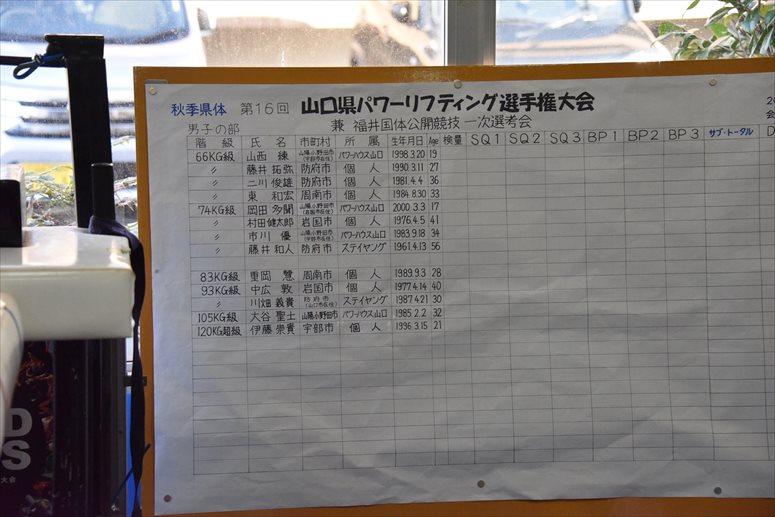 秋季県体 第16回 山口県パワーリフティング選手権大会
男子の部 兼 福井国体公開競技 一次選考会
階級 氏名 市町村 所属 生年月日 Age 検量 SQ1 SQ2 SQ3 BP1 BP2 BP3 サブ・トータル D
66KG級 山西 練 山陽小野田市 パワーハウス山口 1998 3.20 19
〃 藤井拓弥 防府市 個人 1990 3.11 27
〃 二川俊雄 防府市 個人 1981.4.4 36
〃 東 和宏 周南市 個人 1984 8.30 33
74KG級 岡田多聞 山陽小野田市 パワーハウス山口 2000 3.3 17
〃 村田健太郎 岩国市 個人 1976.4.5 41
〃 市川 優 山陽小野田市 パワーハウス山口 1983 9.18 34
〃 藤井和人 防府市 ステイヤング 1961.4.13 56
83KG級 重岡 慧 周南市 個人 1989 9.3 28
93KG級 中広 敦 岩国市 個人 1977.4.14 40
〃 川畑義貴 防府市 (山口市在住) ステイヤング 1987 4.21 30
105KG級 大谷聖士 山陽小野田市 パワーハウス山口 1985 2.2 32
120KG超級 伊藤崇貴 宇部市 個人 1996 3.15 21
D
S
大会